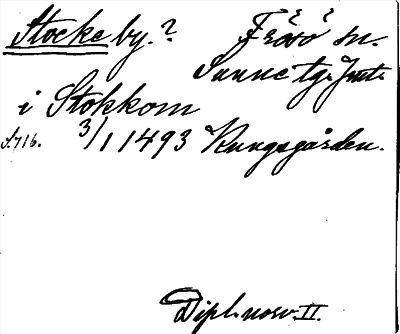 Stocke by.? Frösö sn.
Sunne tg. Jmt.
i Stokkom
S. 716. 3/1 1493 Kungsgården.
Dipl. norv. II.